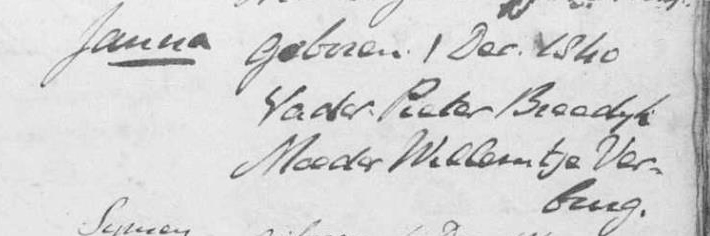 Janna geboren 1 Dec. 1840
Vader Pieter Breedijk
Moeder Willemtje Ver-
burg.
Symen